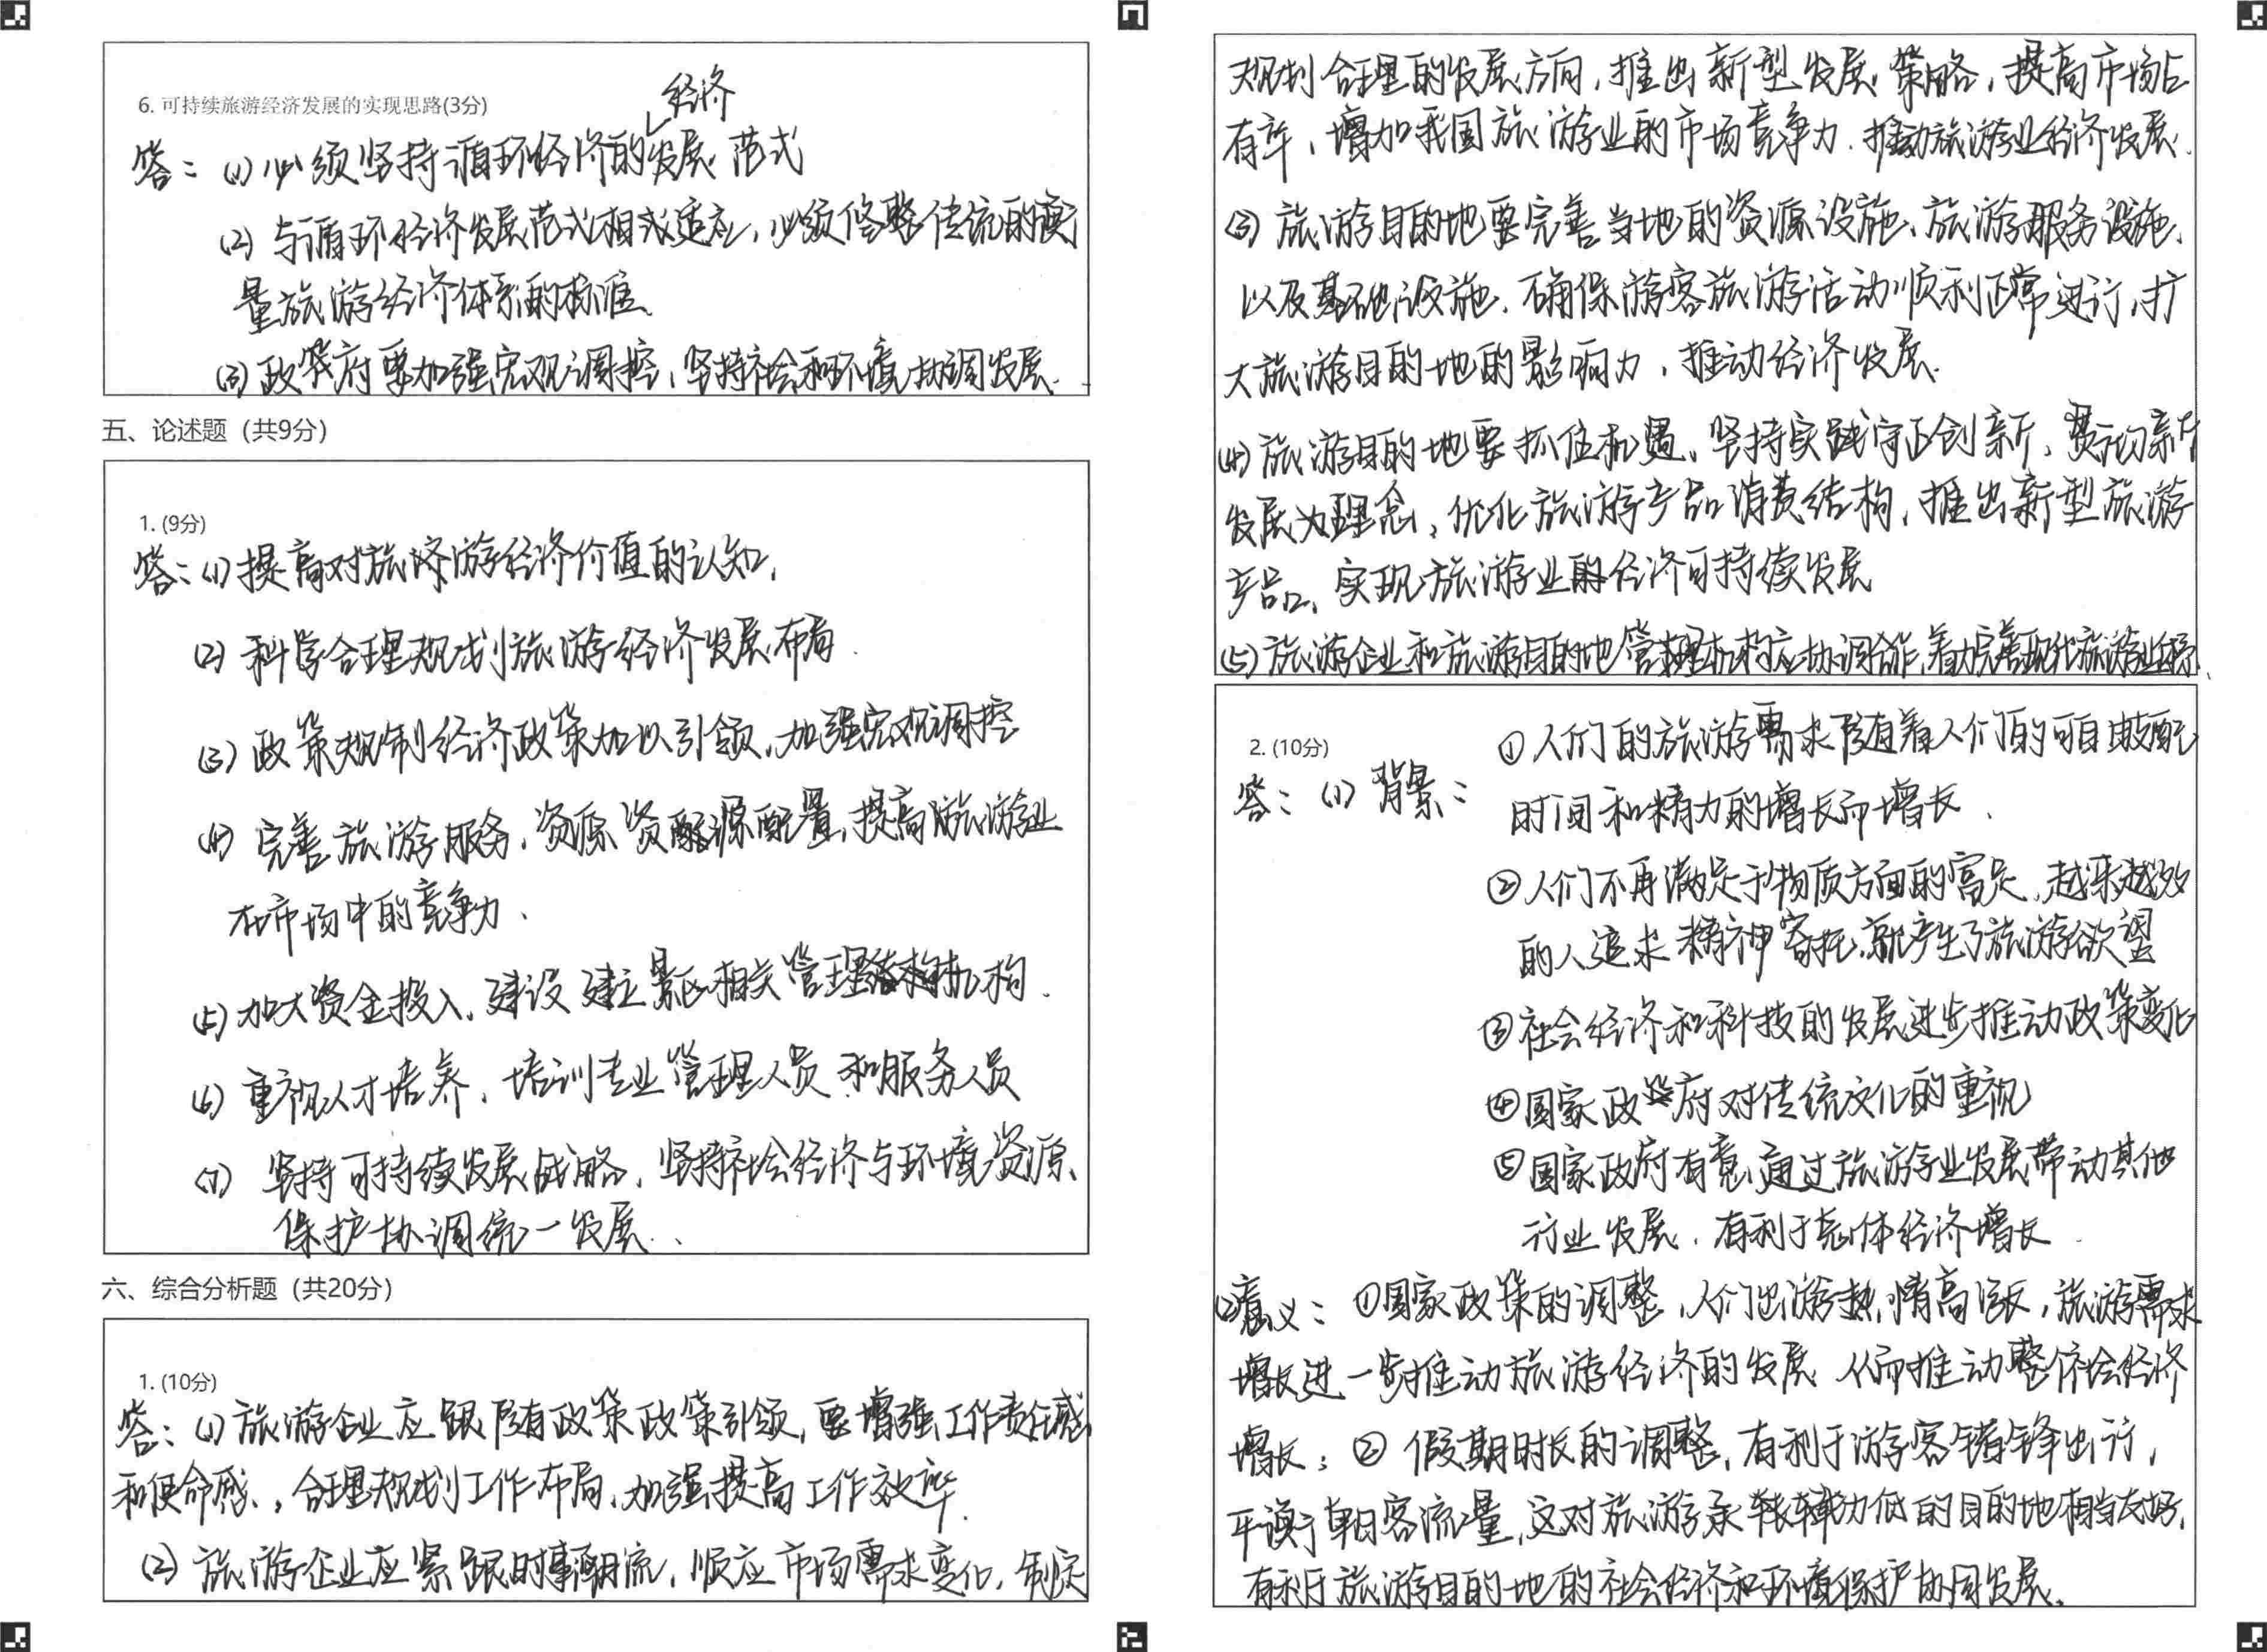 6. 可持续旅游经济发展的实现思路(3分)
经济
答：(1) 必须坚持循环经济的发展范式
(2) 与循环经济发展范式相适应，必须修整传统的衡
量旅游经济体系的标准
(3) 政府要加强宏观调控，坚持社会和环境协调发展.
五、论述题（共9分）
1. (9分)
答：(1) 提高对旅游经济价值的认知，
(2) 科学合理规划旅游经济发展布局.
(3) 政策规制经济政策加以引领，加强宏观调控
(4) 完善旅游服务，资源配置，提高旅游业
在市场中的竞争力、
(5) 加大资金投入，建设建立景区相关管理机构.
(6) 重视人才培养，培训专业管理人员和服务人员
(7) 坚持可持续发展战略，坚持社会经济与环境资源
保护协调统一发展.
六、综合分析题（共20分）
1. (10分)
答：(1) 旅游企业应跟随政策政策引领，要增强工作责任感
和使命感，合理规划工作布局，加强提高工作效率.
(2) 旅游企业应紧跟时事潮流，顺应市场需求变化，制定
规划合理的发展方向，推出新型发展策略，提高市场占
有率，增加我国旅游业的市场竞争力.推动旅游业经济发展.
(3) 旅游目的地要完善当地的资源设施、旅游服务设施、
以及基础设施.确保游客旅游活动顺利正常进行，扩
大旅游目的地的影响力，推动经济发展.
(4) 旅游目的地要抓住机遇，坚持实践守正创新，贯彻新
发展为理念，优化旅游产品消费结构，推出新型旅游
产品，实现旅游业的经济可持续发展
(5) 旅游企业和旅游目的地管理机构应协调合作，着力完善现代旅游业体系.
2. (10分)
答：(1) 背景：
①人们的旅游需求随着人们的可自由支配
时间和精力的增长而增长.
②人们不再满足于物质方面的富足，越来越多
的人追求精神寄托，就产生了旅游欲望
③社会经济和科技的发展进步推动政策变化
④国家政府对传统文化的重视
⑤国家政府有意通过旅游业发展带动其他
行业发展，有利于总体经济增长.
(2) 意义：①国家政策的调整，人们出游热情高涨，旅游需求
增长进一步推动旅游经济的发展从而推动整个社会经济
增长；② 假期时长的调整，有利于游客错锋出行，
平衡每日客流量，这对旅游承载力低的目的地相当友好，
有利于旅游目的地的社会经济和环境保护协同发展.